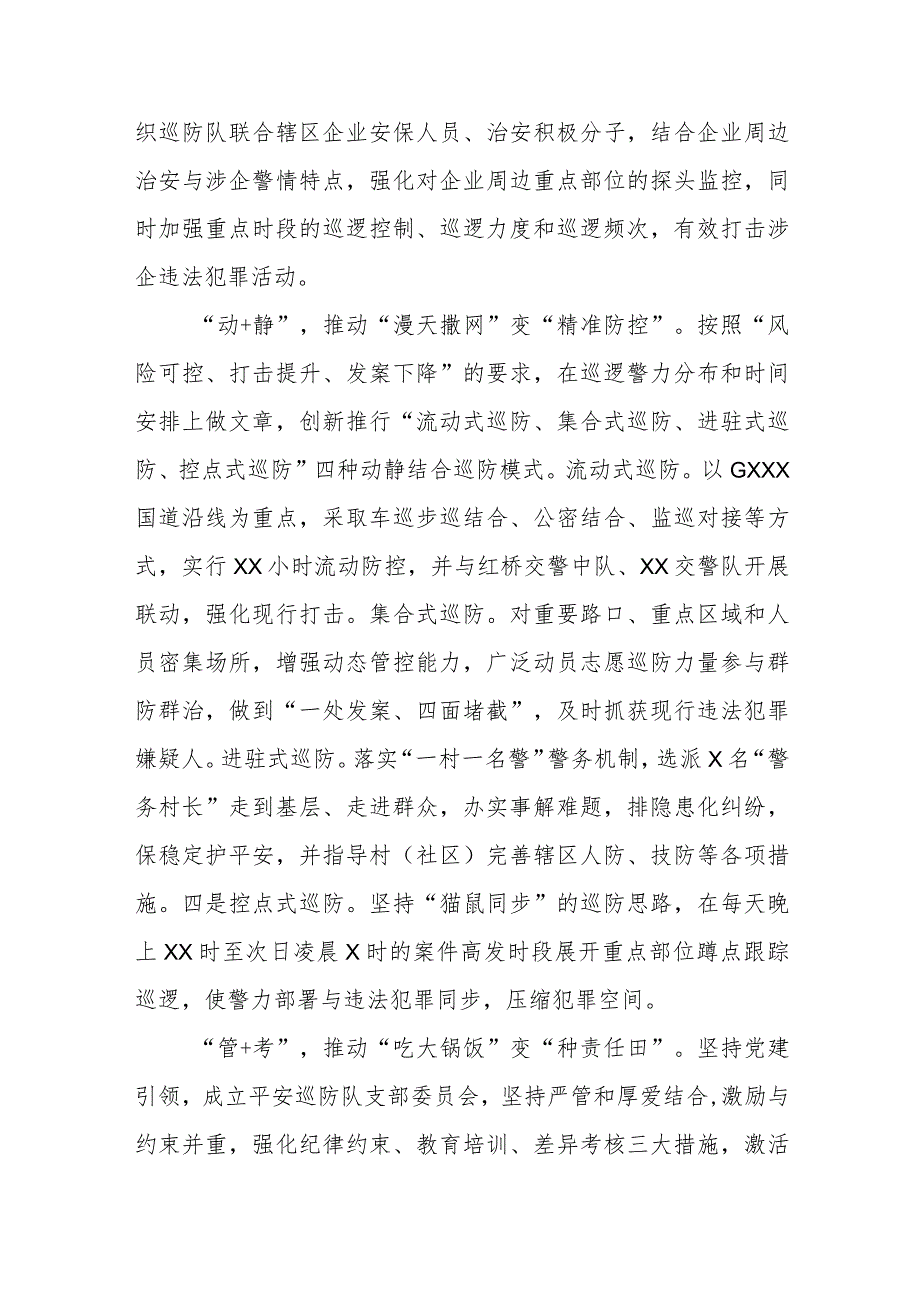 织巡防队联合辖区企业安保人员、治安积极分子，结合企业周边
治安与涉企警情特点，强化对企业周边重点部位的探头监控，同
时加强重点时段的巡逻控制、巡逻力度和巡逻频次，有效打击涉
企违法犯罪活动。
“动+静”，推动“漫天撒网”变“精准防控”。按照“风
险可控、打击提升、发案下降”的要求，在巡逻警力分布和时间
安排上做文章，创新推行“流动式巡防、集合式巡防、进驻式巡
防、控点式巡防”四种动静结合巡防模式。流动式巡防。以 GXXX
国道沿线为重点，采取车巡步巡结合、公密结合、监巡对接等方
式，实行 XX 小时流动防控，并与红桥交警中队、XX 交警队开展
联动，强化现行打击。集合式巡防。对重要路口、重点区域和人
员密集场所，增强动态管控能力，广泛动员志愿巡防力量参与群
防群治，做到“一处发案、四面堵截”，及时抓获现行违法犯罪
嫌疑人。进驻式巡防。落实“一村一名警”警务机制，选派 X 名“警
务村长”走到基层、走进群众，办实事解难题，排隐患化纠纷，
保稳定护平安，并指导村（社区）完善辖区人防、技防等各项措
施。四是控点式巡防。坚持“猫鼠同步”的巡防思路，在每天晚
上 XX 时至次日凌晨 X 时的案件高发时段展开重点部位蹲点跟踪
巡逻，使警力部署与违法犯罪同步，压缩犯罪空间。
“管+考”，推动“吃大锅饭”变“种责任田”。坚持党建
引领，成立平安巡防队支部委员会，坚持严管和厚爱结合,激励与
约束并重，强化纪律约束、教育培训、差异考核三大措施，激活